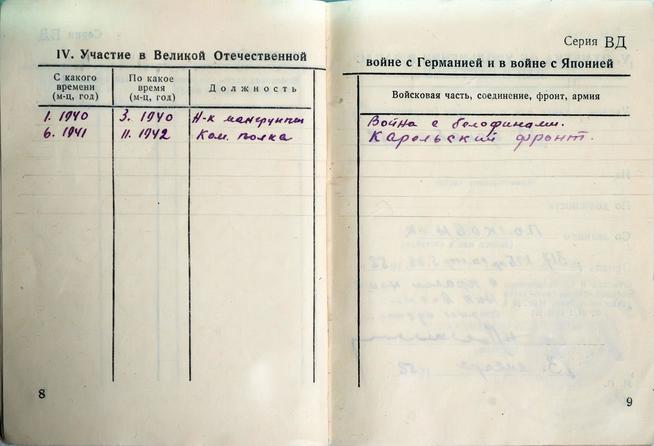 IV. Участие в Великой Отечественной
С какого времени (м-ц, год)
По какое время (м-ц, год)
Должность
1. 1940 3. 1940 Н-к манgрупты
6. 1941 11. 1942 Ком. полка
8
Серия ВД
войне с Германией и в войне с Японией
Войсковая часть, соединение, фронт, армия
Война с белофинами.
Карельский фронт.
9